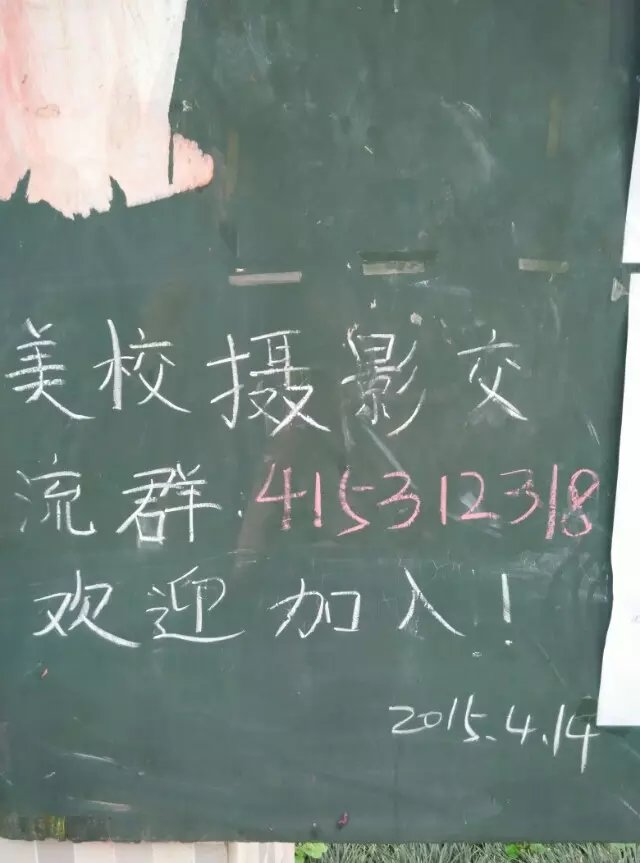 美校摄影交
流群.415312318
欢迎加入!
2015.4.14